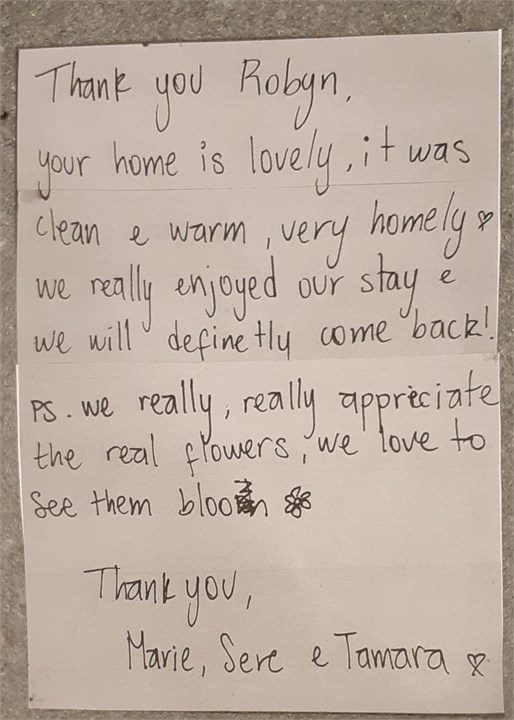 Thank you Robyn,
your home is lovely, it was
clean e warm, very homely
we really enjoyed our stay e
we will definetly come back!
PS. we really, really appreciate
the real flowers, we love to
see them
Thank you,
Marie, Sere e Tamara